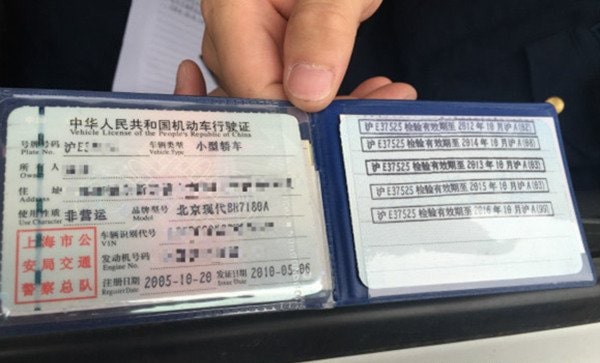 中华人民共和国机动车行驶证
Vehicle License of the People's Republic of China
号牌号码 沪E3 车辆类型 小型轿车
Plate No. Vehicle Type
所有人
Owner
住址
Address
使用性质 非营运 品牌型号 北京现代BH7180A
Use Character Model
上海市公
安局交通
警察总队
车辆识别代号
VIN
发动机号码
Engine No.
注册日期 2005-10-20 发证日期 2010-05-06
Register Date Issue Date
沪E37525 检验有效期至 2012年10月沪A(82)
沪E37525 检验有效期至 2014年10月沪A(03)
沪E37525 检验有效期至 2013年10月沪A(03)
沪E37525 检验有效期至 2015年10月沪A(03)
沪E37525 检验有效期至 2016年10月沪A(90)